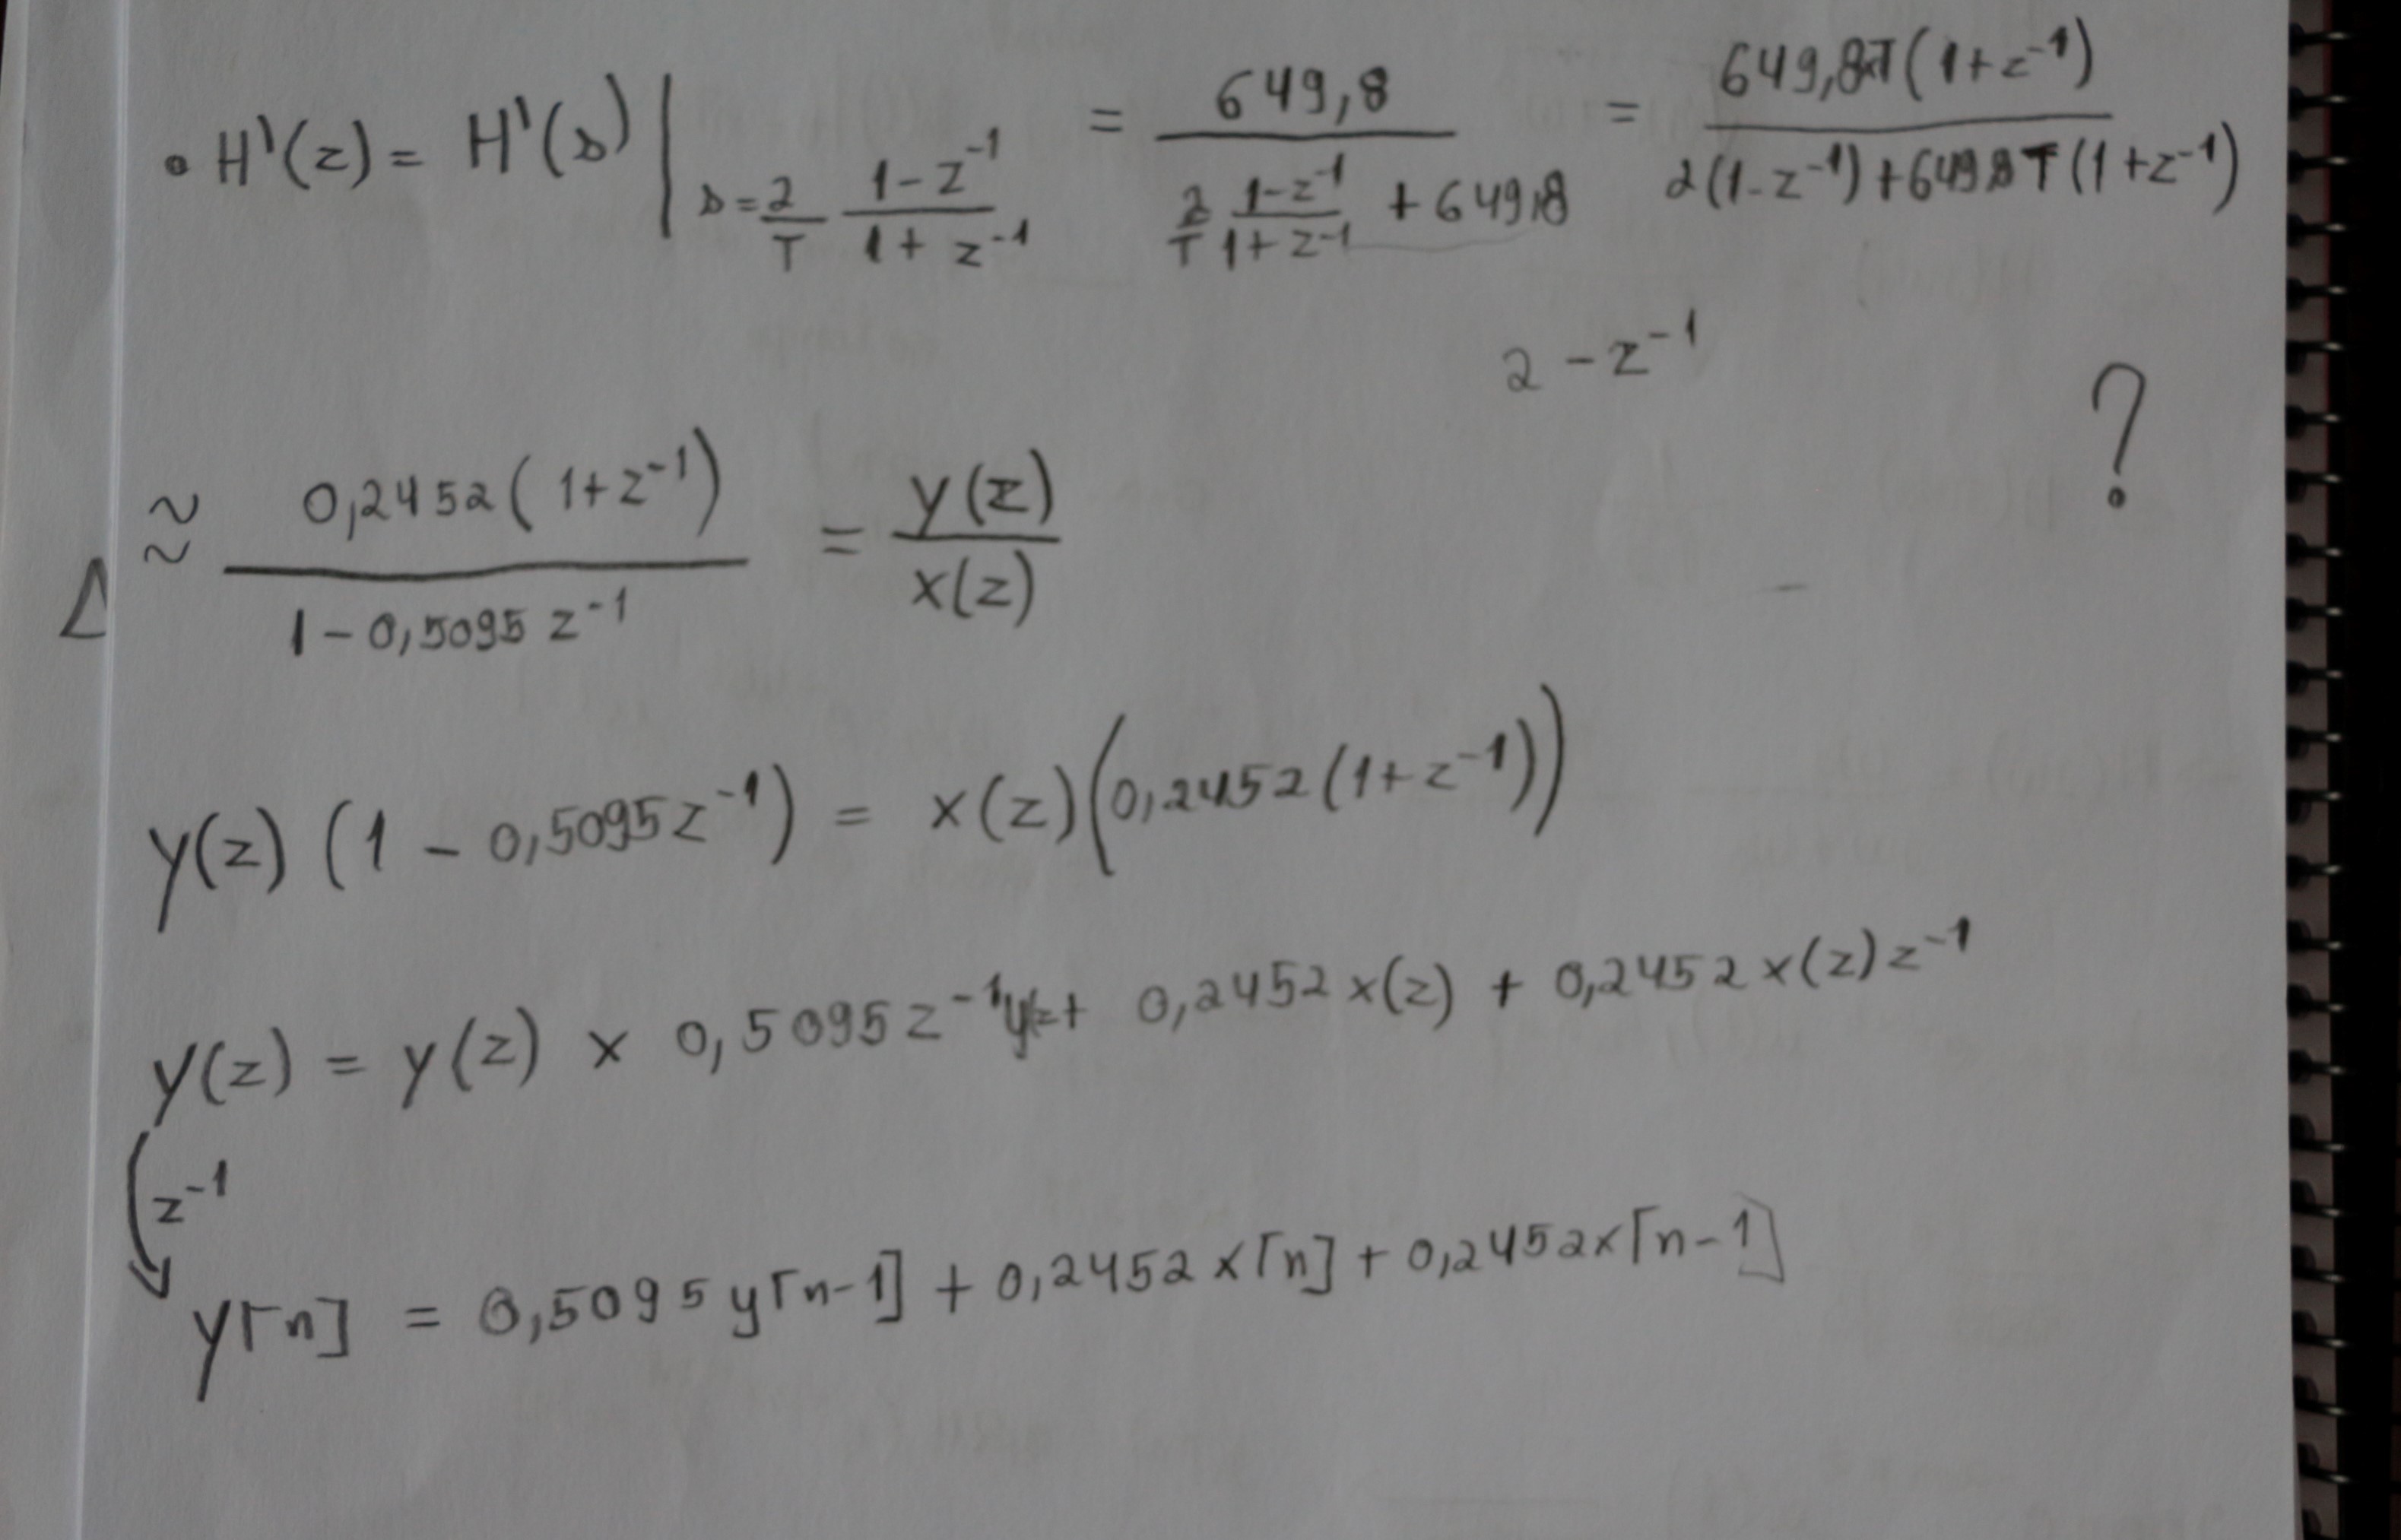 • H'(z) = H'(s) | s = 2/T (1-z⁻¹)/(1+z⁻¹) = 649,8 / (2/T (1-z⁻¹)/(1+z⁻¹) + 649,8) = 649,8T(1+z⁻¹) / (2(1-z⁻¹)+649,8T(1+z⁻¹))
2 - z⁻¹
?
≈ 0,2452(1+z⁻¹) / (1-0,5095z⁻¹) = y(z)/x(z)
y(z) (1 - 0,5095z⁻¹) = x(z)(0,2452(1+z⁻¹))
y(z) = y(z) × 0,5095z⁻¹ + 0,2452x(z) + 0,2452x(z)z⁻¹
z⁻¹
y[n] = 0,5095y[n-1] + 0,2452x[n] + 0,2452x[n-1]